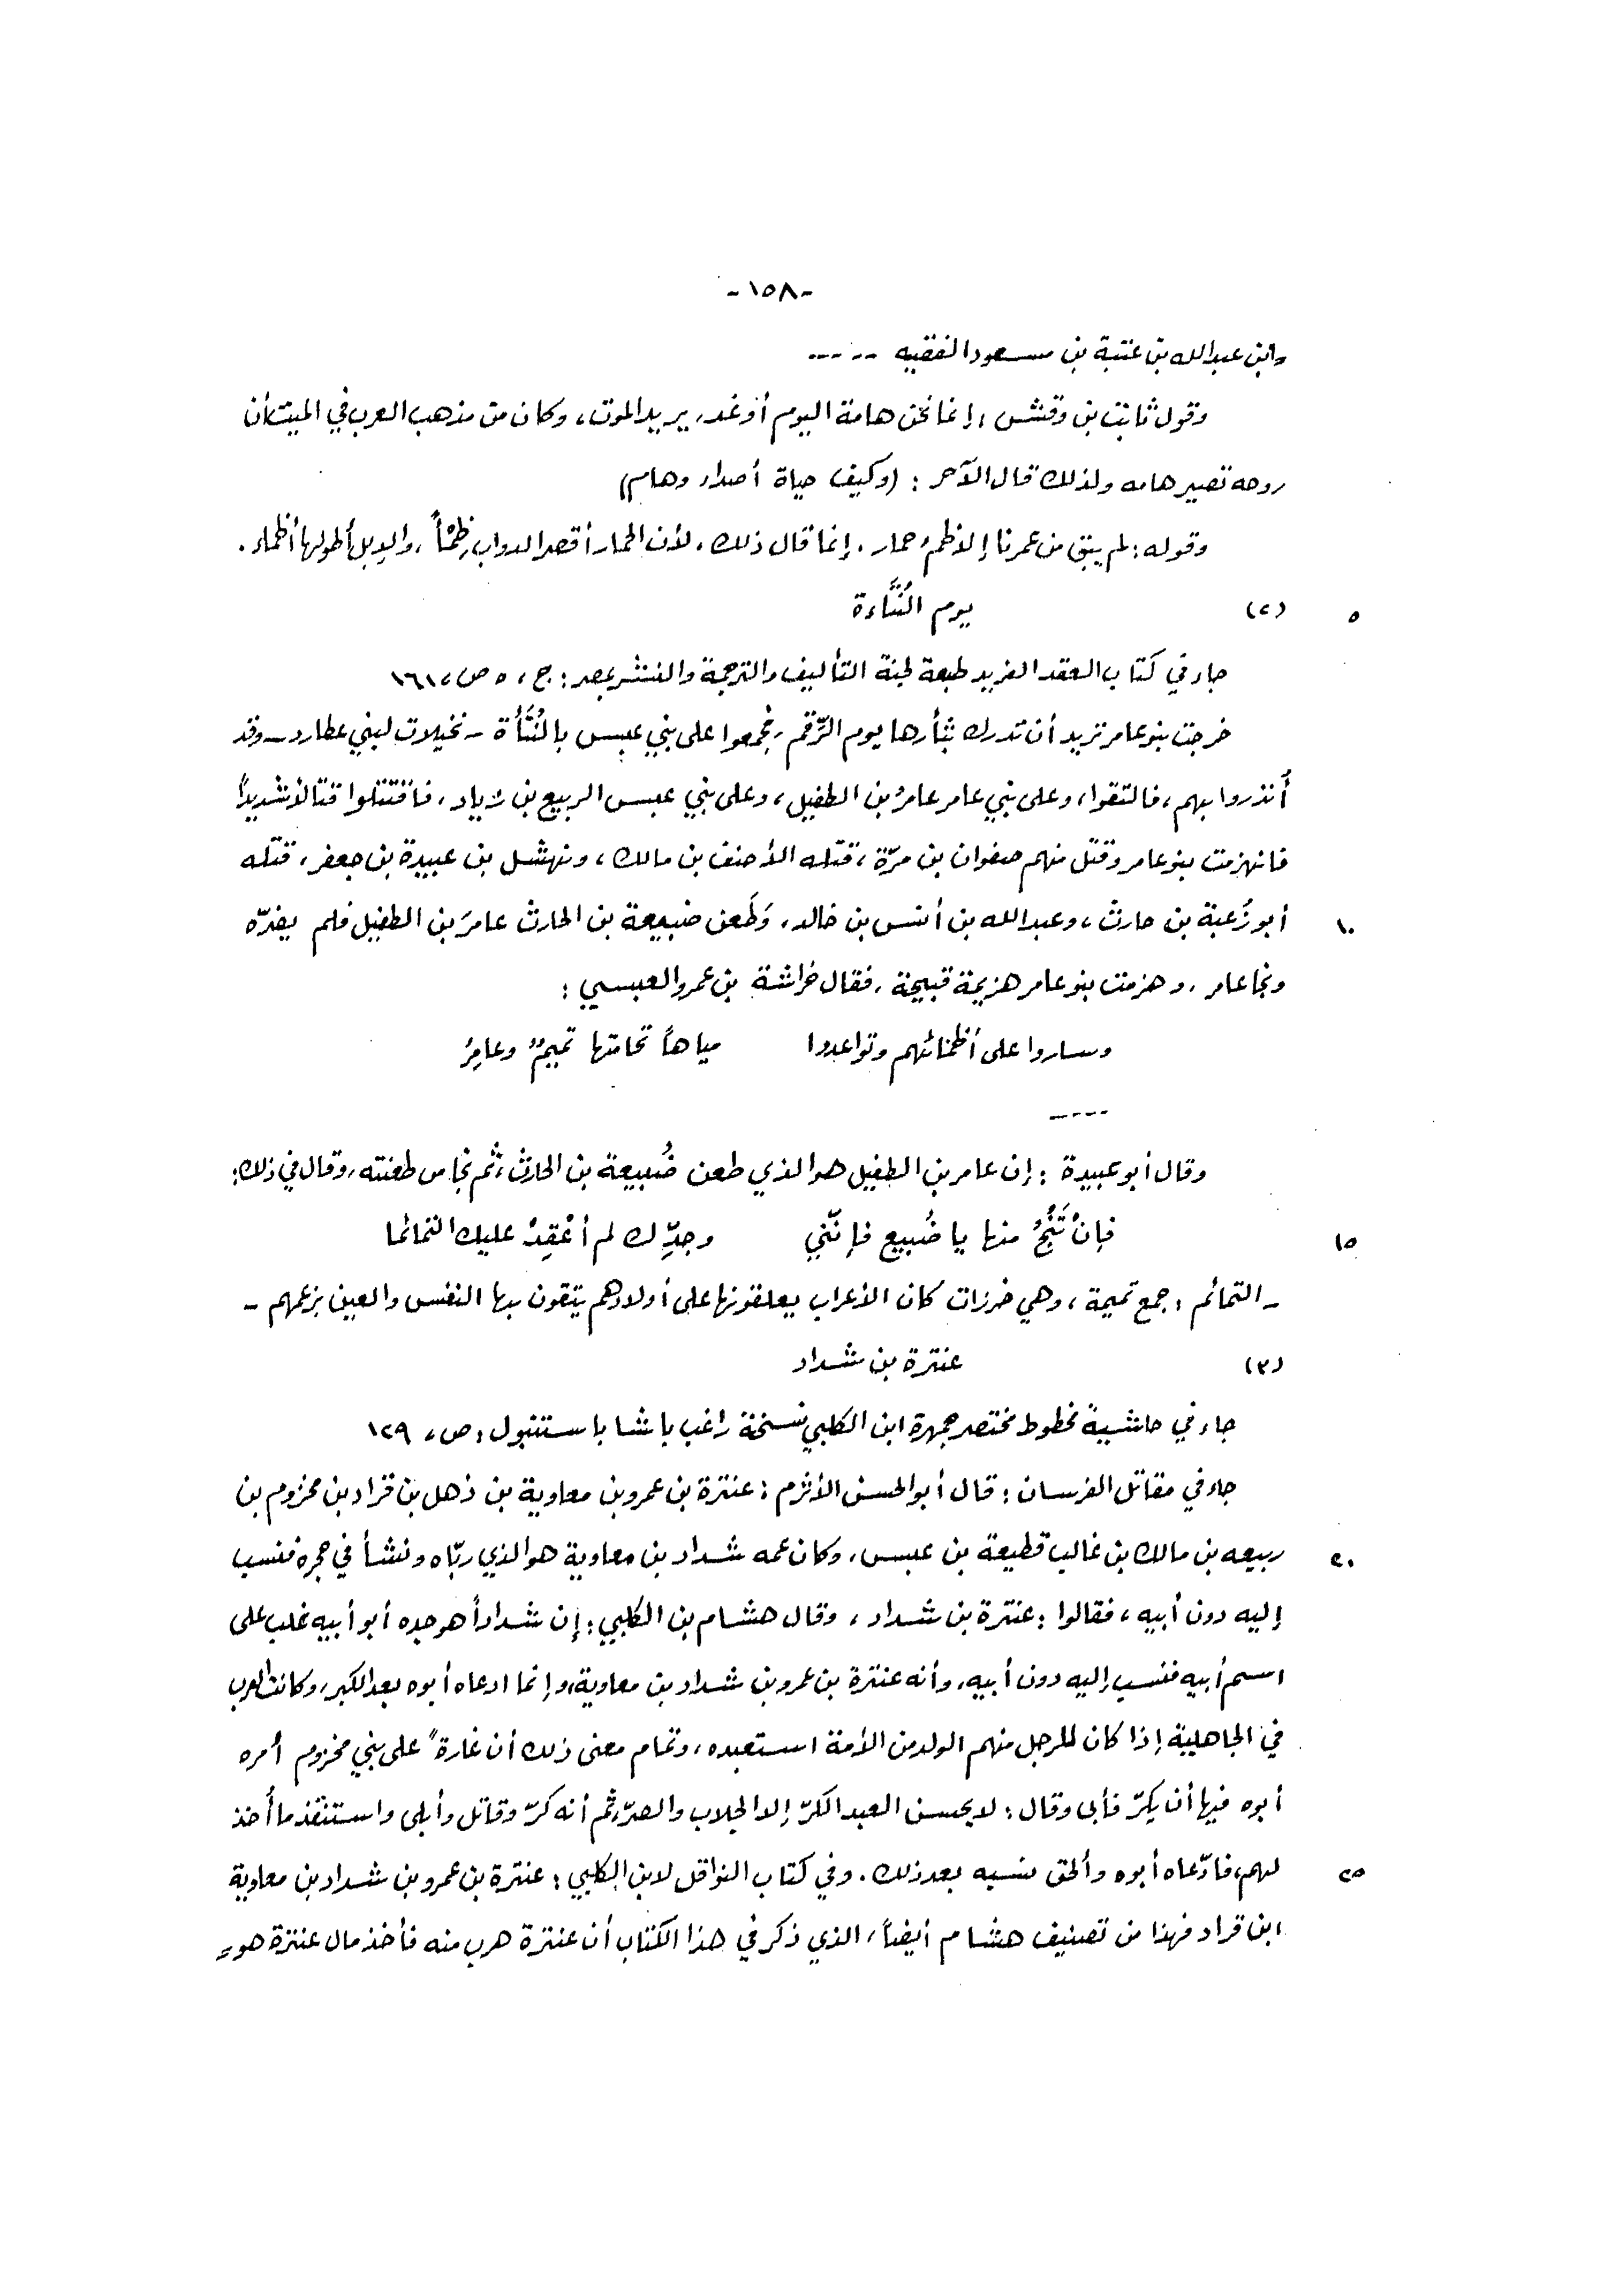 -١٥٨-
= ابن عبد الله بن عتبة بن مسعود الفقيه -----
وقول ثابت بن وقش، إنما نحن هامة اليوم أو غد، يريد الموت، وكان من مذهب العرب في الميت أن
روحه تصير هامه ولذلك قال الآخر : (وكيف حياة أصداء وهام)
وقوله : لم يبق من عمرنا إلا ظمْء حمار. إنما قال ذلك، لأن الحمار أقصر الدواب ظِمْأً، والإبل أطولها أظماء.
٥ (٢) يوم النُّتَّاءة
جاء في كتاب العقد الفريد طبعة لجنة التأليف والترجمة والنشر بمصر : ج، ٥ ص، ١٦١
خرجت بنو عامر تريد أن تدرك بثأرها يوم الرَّقم، فجمعوا على بني عبس بالنُّتَّأة - نخيلات لبني عطارد - وقد
أُنذروا بهم، فالتقوا، وعلى بني عامر عامرُ بن الطفيل، وعلى بني عبس الربيع بن زياد، فاقتتلوا قتالاً شديداً
فانهزمت بنو عامر وقتل منهم صفوان بن مرّة، قتله الأحنف بن مالك، ونهشل بن عبيدة بن جعفر، قتله
١٠ أبو زَعبة بن حارث، وعبد الله بن أنس بن خالد، وَطَعن ضبيعة بن الحارث عامرَ بن الطفيل فلم يضرّه
ونجا عامر، وهزمت بنو عامر هزيمة قبيحة، فقال خراشة بن عمرو العبسي :
وساروا على أظمائهم وتواعدوا مياهاً تحامتها تميمٌ وعامِرُ
----
وقال أبو عبيدة : إن عامر بن الطفيل هو الذي طعن ضُبيعة بن الحارث، ثم نجا من طعنته، وقال في ذلك:
١٥ فإنْ تَنْجُ منها يا ضُبيع فإنّني وجدِّك لم أعْقِدْ عليك التمائما
- التمائم : جمع تميمة، وهي خرزات كان الأعراب يعلقونها على أولادهم يتقون بها النفس والعين بزعمهم -
(٣) عنترة بن شداد
جاء في حاشية مخطوط مختصر جمهرة ابن الكلبي نسخة راغب باشا باستنبول : ص، ١٢٩
جاء في مقاتل الفرسان : قال أبو الحسن الأثرم : عنترة بن عمرو بن معاوية بن ذهل بن قراد بن مخزوم بن
٢٠ ربيعه بن مالك بن غالب قطيعة بن عبس، وكان عمه شداد بن معاوية هو الذي ربّاه ونشأ في حجره فنسب
إليه دون أبيه، فقالوا : عنترة بن شداد، وقال هشام بن الكلبي : إن شداداً هو جده أبو أبيه غلب على
اسم أبيه فنسب إليه دون أبيه، وأنه عنترة بن عمرو بن شداد بن معاوية، وإنما ادعاه أبوه بعد الكبر، وكانت العرب
في الجاهلية إذا كان للرجل منهم الولد من الأمة استعبده، وتمام معنى ذلك أن غارةً على بني مخزوم أمره
أبوه فيها أن يكرّ فأبى وقال : لا يحسن العبد الكرّ إلا الحلاب والصرّ، ثم أنه كرّ وقاتل وأبلى واستنقذ ما أُخذ
٢٥ لهم، فادّعاه أبوه وألحق نسبه بعد ذلك. وفي كتاب النواقل لابن الكلبي : عنترة بن عمرو بن شداد بن معاوية
ابن قراد فهذا من تصنيف هشام أيضاً، الذي ذكر في هذا الكتاب أن عنترة هرب منه فأخذ مال عنترة هو =